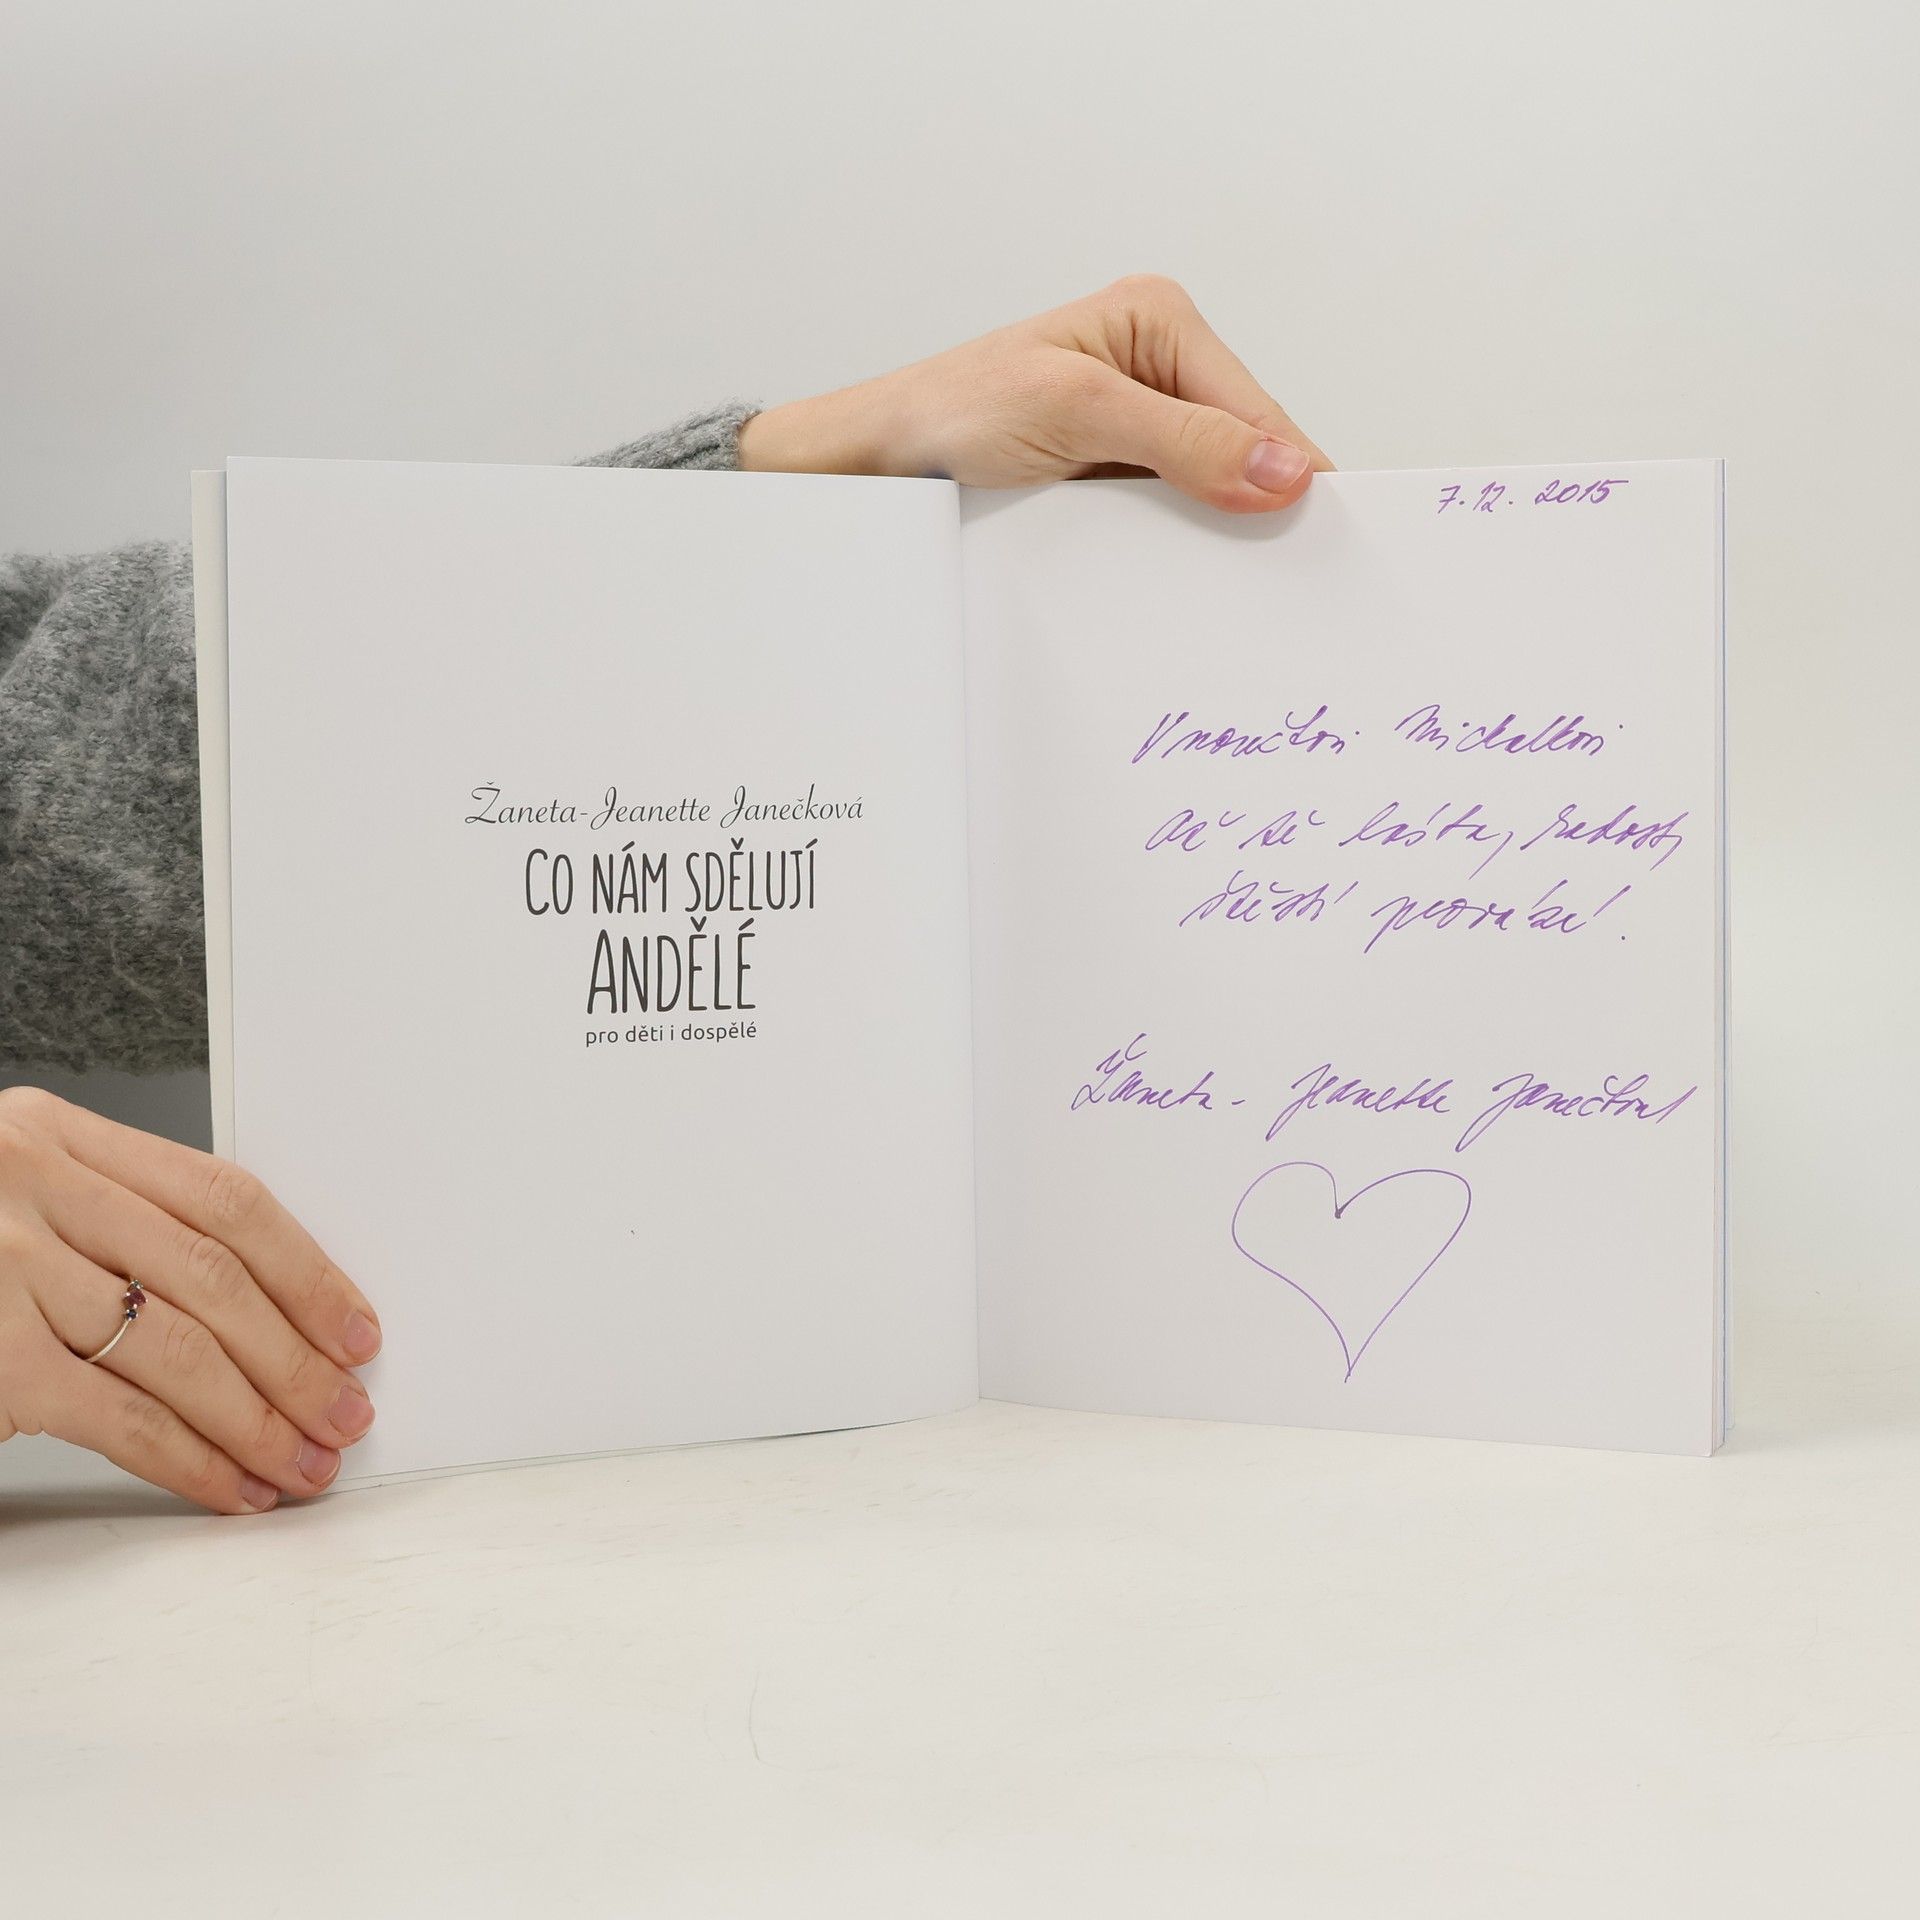 Žaneta-Jeanette Janečková
CO NÁM SDĚLUJÍ
ANDĚLÉ
pro děti i dospělé
7.12. 2015
Vnoučkovi Michalkovi
Ať tě láska, radost,
štěstí provází.
Žaneta - Jeanette Janečková